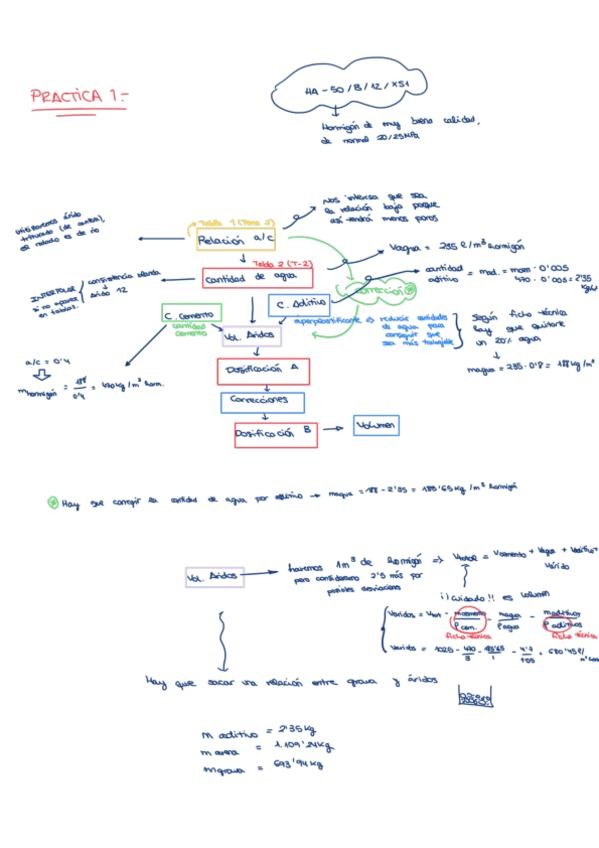 PRACTICA 1:-
HA-50/B/12/XS1
Hormigón de muy buena calidad,
de normal 20/25MPa
utilizaremos árido
triturado (de cantera),
el rodado es de río
Tabla 1 (Tema 2)
Relación a/c
Nos interesa que sea
la relación baja porque
así tendrá menos poros
Tabla 2 (T-2)
Cantidad de agua
Vagua = 235 l/m³ hormigón
INTERPOLAR
si no aparece
en tablas.
consistencia blanda
árido 12
C. Aditivo
cantidad
aditivo = mad. = mcem · 0'005
470 · 0'005 = 2'35
kg/m
Corrección
C. Cemento
cantidad
cemento
Vol. Áridos
superplastificante => reducir cantidades
de agua para
conseguir que
sea más trabajable
Según ficha técnica
hay que quitarle
un 20% agua
magua = 235 · 0'8 = 188 kg/m³
a/c = 0'4
mhormigón = 188/0'4 = 470 kg/m³ horm.
Dosificación A
Correcciones
Dosificación B
Volumen
Hay que corregir la cantidad de agua por aditivo → magua = 188 - 2'35 = 185'65 kg/m³ hormigón
Vol. Áridos
haremos 1m³ de hormigón => Vtotal = Vcemento + Vagua + Vaditivo +
Várido
pero consideramos 2'5 más por
posibles desviaciones
¡¡Cuidado!! es volumen
Váridos = Vtot - mcemento/ρcem. - magua/ρagua - maditivos/ρaditivos
ficha técnica
ficha técnica
Váridos = 1025 - 470/3 - 185'65/1 - = 680'45 l/
Hay que sacar una relación entre grava y áridos
m aditivo = 2'35 kg
m arena = 1.109'24 kg
m grava = 693'94 kg